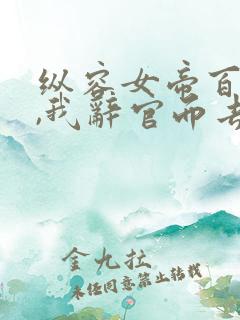 纵容女帝百
,我辞官而去
金九拉
未经同意禁止转载